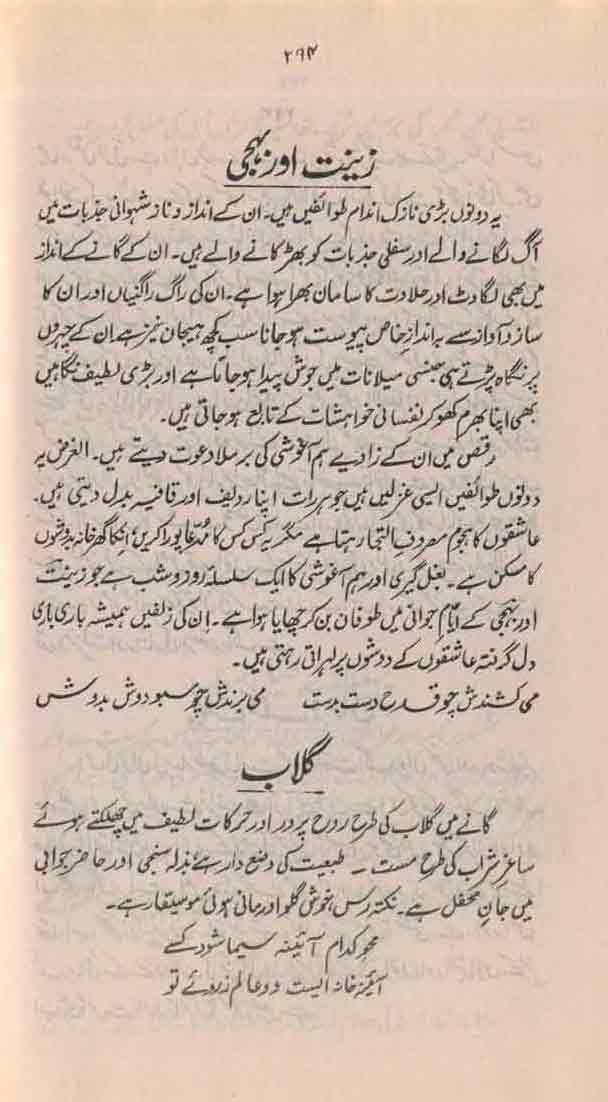 ۲۹۴
زینت اور بہجی
یہ دونوں بڑی نازک اندام طوائفیں ہیں۔ ان کے انداز و ناز شہوانی جذبات میں
آگ لگانے والے اور سفلی جذبات کو بھڑکانے والے ہیں۔ ان کے گانے کے انداز
میں بھی لگاوٹ اور حلاوت کا سامان بھرا ہوا ہے۔ ان کی راگ راگنیاں اور ان کا
ساز و آواز سے بہ اندازِ خاص پیوست ہو جانا سب کچھ ہیجان خیز ہے ان کے چہروں
پر نگاہ پڑتے ہی جنسی میلانات میں جوش پیدا ہو جاتا ہے اور بڑی لطیف نگاہیں
بھی اپنا بھرم کھو کر نفسانی خواہشات کے تابع ہو جاتی ہیں۔
رقص میں ان کے زاویے ہم آغوشی کی برملا دعوت دیتے ہیں۔ الغرض یہ
دونوں طوائفیں ایسی غزلیں ہیں جو ہر رات اپنا ردیف اور قافیہ بدل دیتی ہیں۔
عاشقوں کا ہجوم مصروف التجا رہتا ہے مگر یہ کس کس کا مُدّعا پورا کریں؛ انکا گھر خانہ بدوشوں
کا مسکن ہے۔ بغل گیری اور ہم آغوشی کا ایک سلسلہ روز و شب ہے جو زینت
اور بہجی کے ایّامِ جوانی میں طوفان بن کر چھایا ہوا ہے۔ اِن کی زلفیں ہمیشہ باری باری
دل گرفتہ عاشقوں کے دوشوں پر لہراتی رہتی ہیں۔
می کشندش چو قدح دست بدست می برندش چو سبو دوش بدوش
گلاب
گانے میں گلاب کی طرح روح پرور اور حرکات لطیف میں چھلکتے ہوئے
ساغرِ شراب کی طرح مست ۔ طبیعت کی وضع دار ہے؛ بذلہ سنجی اور حاضر جوابی
میں جانِ محفل ہے۔ نکتہ رس، خوش گلو اور مانی ہوئی موسیقار ہے۔
محو کدام آئینہ سیما شود کسے
آئینہ خانہ ایست دو عالم ز روئے تو